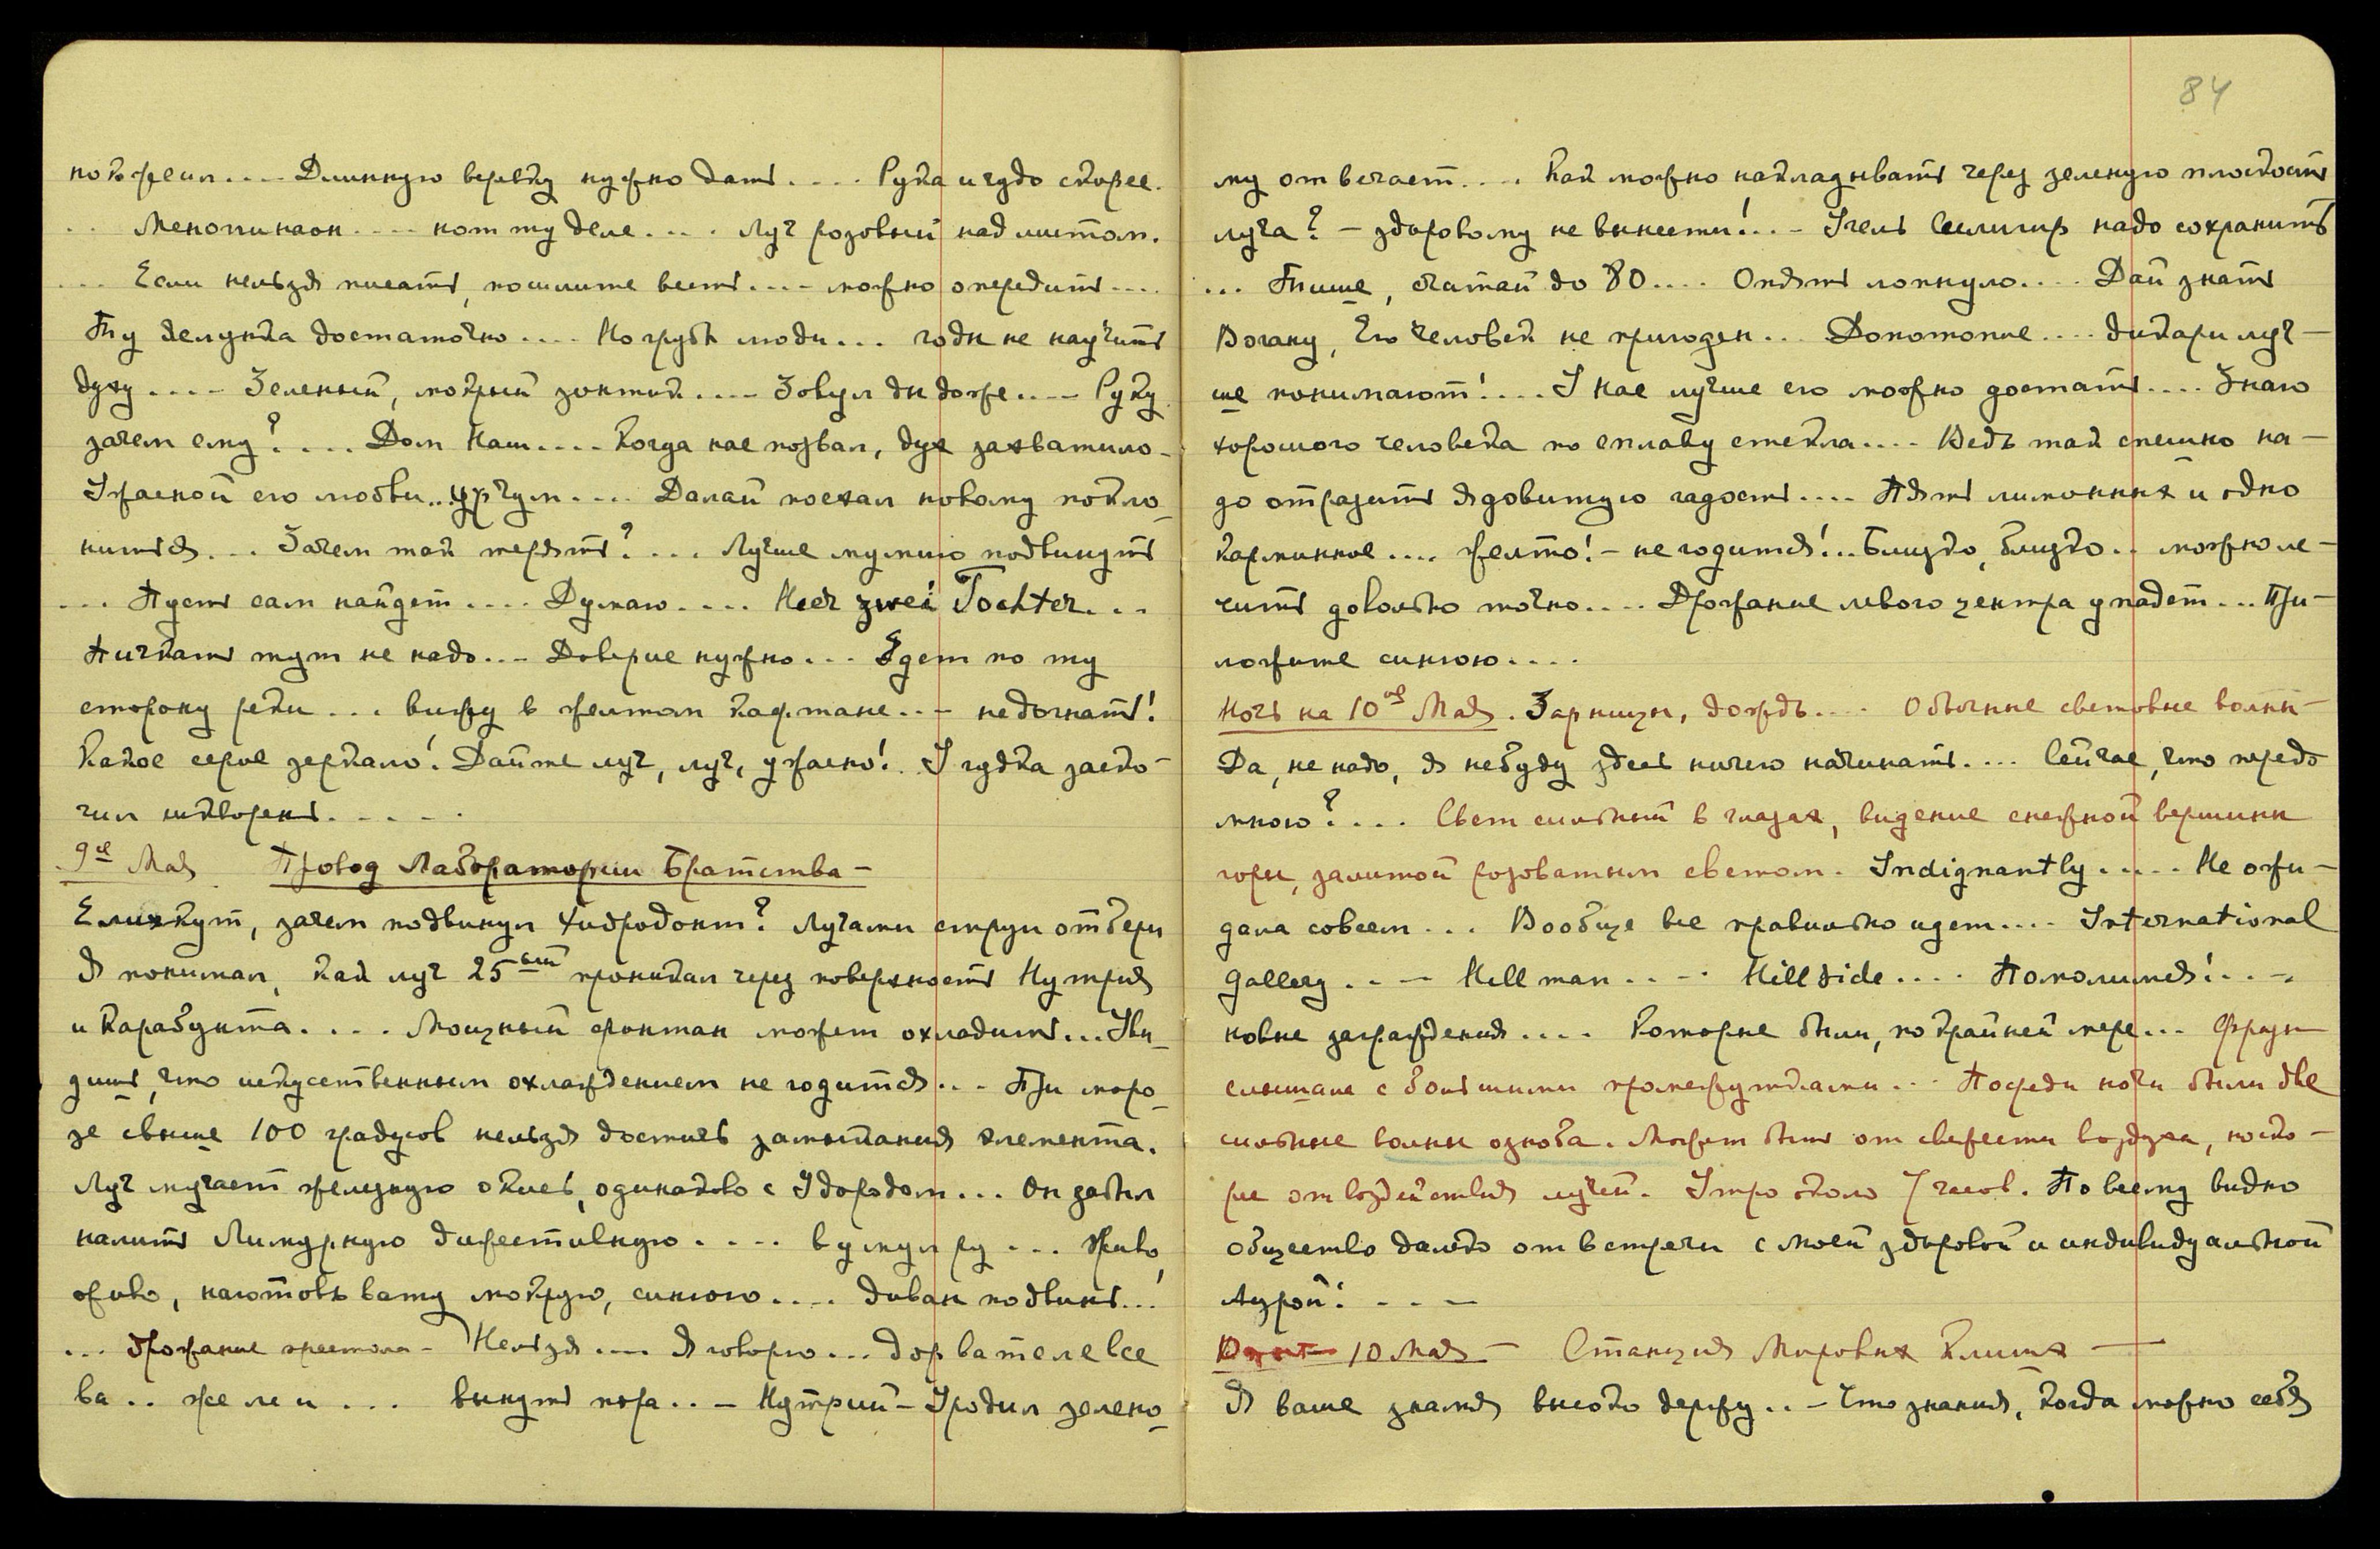 84
.... Длинную веревку нужно дать.... Рука и чудо скорее.
.. .... .... Луч розовый над листом.
... Если нельзя писать, пошлите весть.... можно опередить....
достаточно.... Но грубы люди... годы не научить
духу.... Зеленый, мокрый зонтик.... Зовул дндоже.... Руку
зачем ему?.... Дом Наш.... Когда нас позвал, дух захватило.
Ужасной его любви.. .... Далай поехал новому покло-
ниться... Зачем так терять?... Лучше мумию подвинуть
... Пусть сам найдет.... Думаю.... Heer zwei Tochter...
Пичкать тут не надо.... Доверие нужно... Едет по ту
сторону реки... вижу в желтом кафтане... не догнать!
Какое серое зеркало! Дайте луч, луч, ужасно!.. У гудка заско-
чил шкворень......
9ое Мая Провод Лаборатории Братства—
зачем подвинул Хидродонт? Лучами струи отбери
Я понимал, как луч 25ый проникал через поверхность Нутрия
и Карабункта.... Мощный фонтан может охладить... Уви-
дишь, что искусственным охлаждением не годится... При моро-
зе свыше 100 градусов нельзя достичь замыкания элемента.
Луч мучает железную окись, одинаково с Удородом... Он забыл
налить Лимурную дижестивную.... вумул ру... Живо,
живо, наготовь вату мокрую, синюю.... диван подвинь...!
... дрожание престола— Нельзя.... Я говорю... дор вателевсе
ва.. желеи... вынуть пора..— Нутрий—Уродил зелено-
му отвечает.... Как можно накладывать через зеленую плоскость
луча?— здоровому не вынести!..— Учель Селигир надо сохранить
... Тише, считай до 80.... Опять лопнуло.... Дай знать
Вогану, Его человек не пригоден... Допотопие.... дикари луч-
ше понимают!.... У нас лучше его можно достать.... Знаю
хорошего человека по сплаву стекла.... Ведь так спешно на-
до отразить ядовитую гадость.... Пять лимонных и одно
карминное.... желто!— не годится!.. Близко, близко.. можно ле-
чить довольно точно.... Дрожание левого центра упадет... При-
ложите синюю....
Ночь на 10ое Мая. Зарницы, дождь.... Обычные световые волны—
Да, не надо, я небуду здесь ничего начинать.... Сейчас, что передо
мною?.... Свет сильный в глазах, видение снежной вершины
горы, залитой розоватым светом. Indignantly..... Не ожи-
дала совсем... Вообще все правильно идет.... International
Gallery..— Hill man..—. Hill side.... Помолимся!..—.
новые заграждения.... Которые были, по крайней мере... Фразы
слышаны с большими промежутками... Посреди ночи были две
сильные волны озноба. Может быть от свежести воздуха, нско-
рее от воздействия лучей. Утро около 7 часов. По всему видно
общество далеко от встречи с моей здоровой и индивидуальной
Аурой!...—
10 Мая— Станция Мировых Климх—
Я ваше знамя высоко держу..— Что знания, когда можно себя